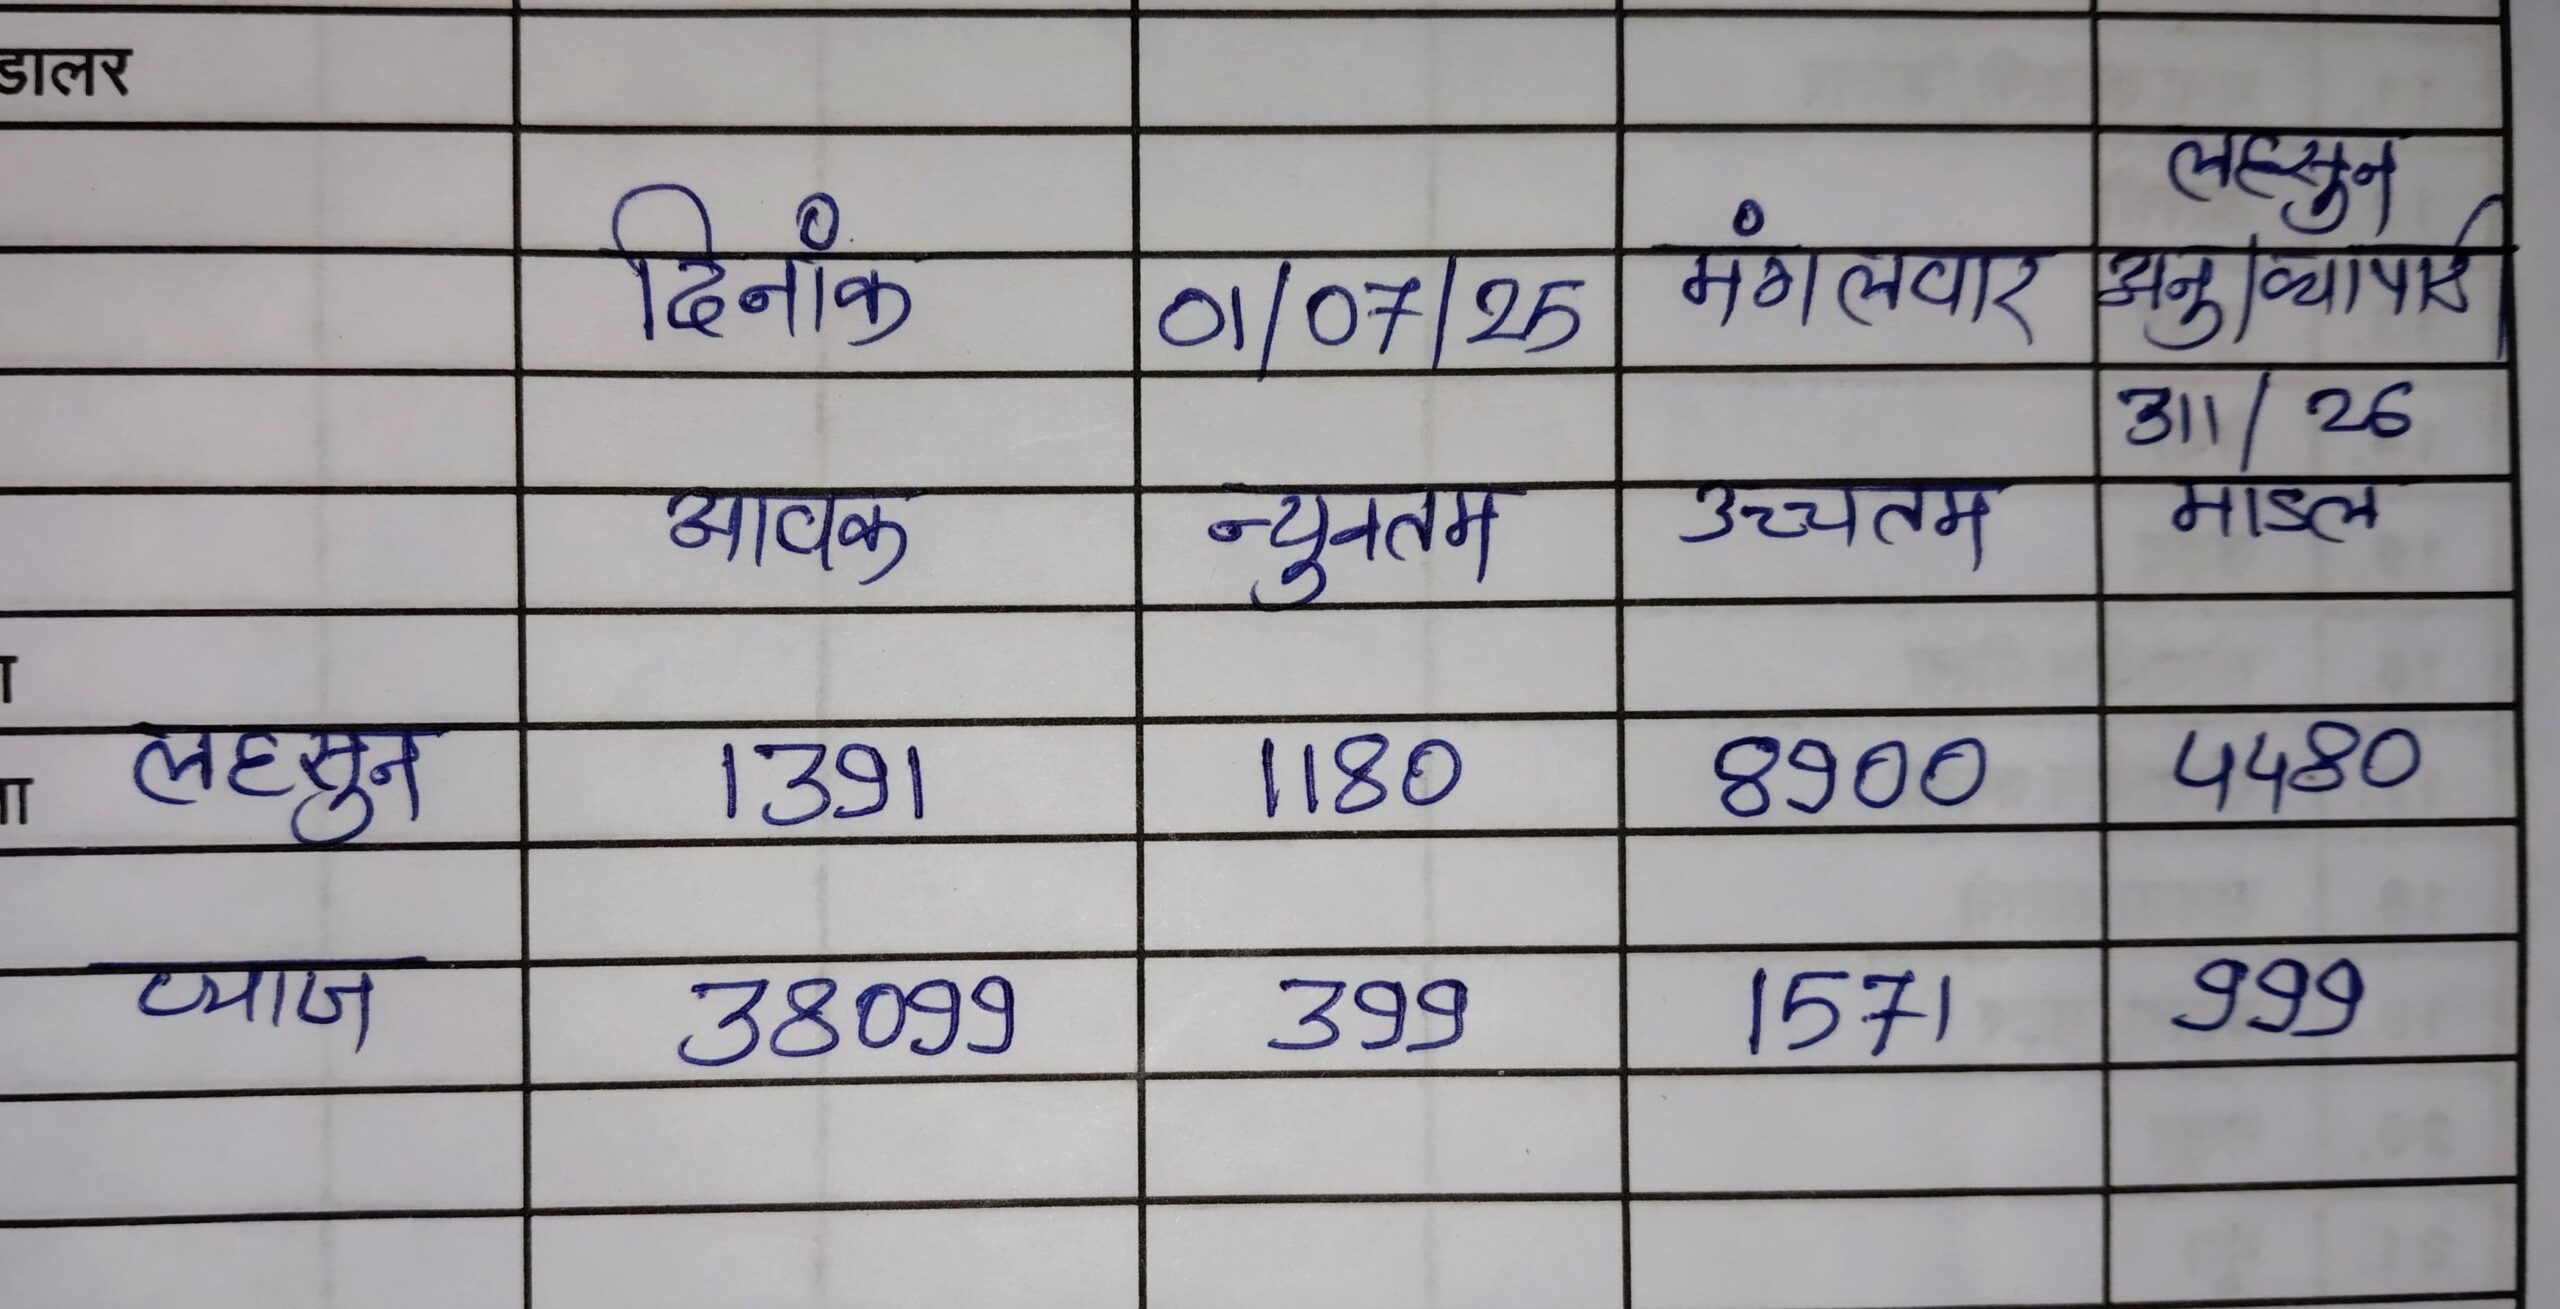 डालर
लहसुन
दिनांक 01/07/25 मंगलवार अनु/व्यापारी
311/26
आवक न्युनतम उच्चतम माडल
लहसुन 1391 1180 8900 4480
प्याज 38099 399 1571 999